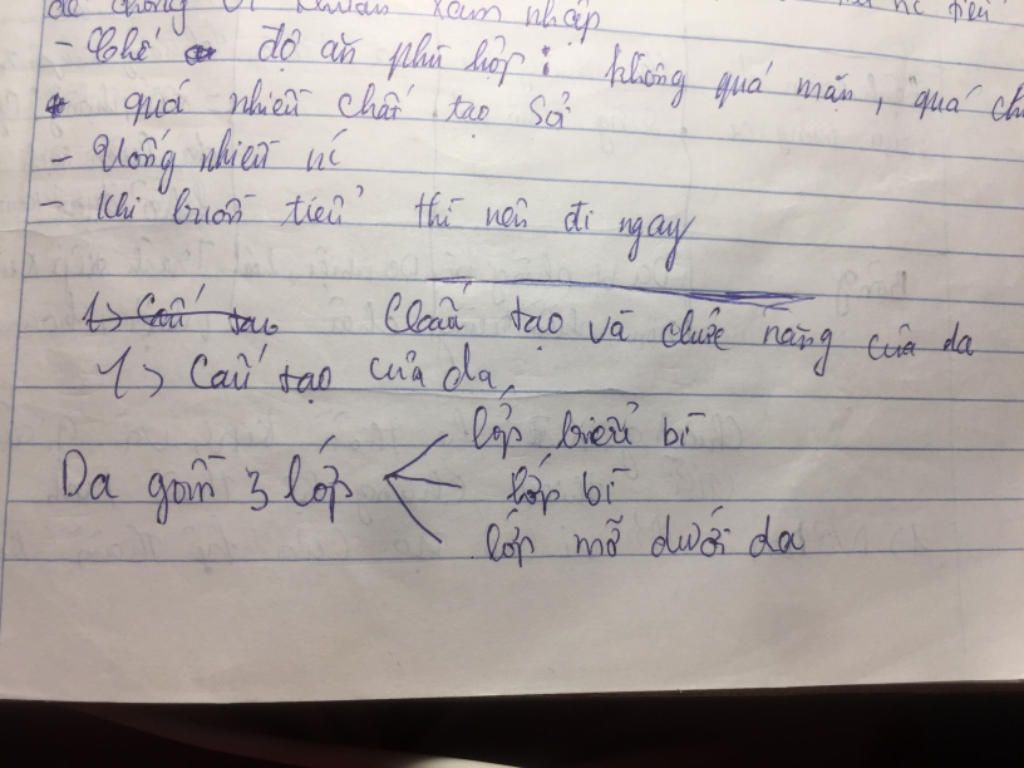 để chống vi khuẩn xâm nhập
nc tiểu
- Chế độ ăn phù hợp: không quá mặn, quá ch
quá nhiều chất tạo sỏi
- Uống nhiều nc
- Khi buồn tiểu thì nên đi ngay
1> Cấu tạo Cấu tạo và chức năng của da
1> Cấu tạo của da,
lớp biểu bì
Da gồm 3 lớp lớp bì
lớp mỡ dưới da